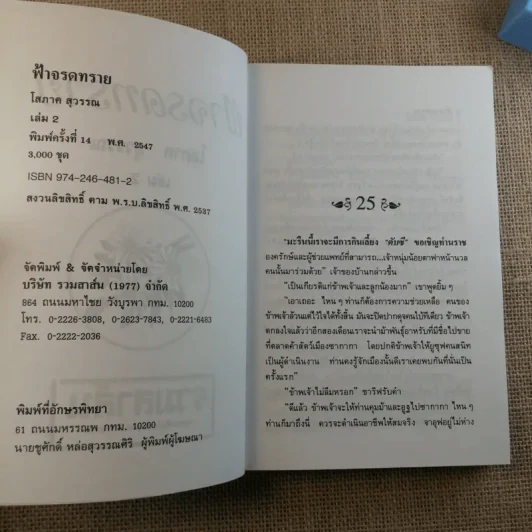 ฟ้าจรดทราย
โสภาค สุวรรณ
เล่ม 2
พิมพ์ครั้งที่ 14 พ.ศ. 2547
3,000 ชุด
ISBN 974-246-481-2
สงวนลิขสิทธิ์ ตาม พ.ร.บ.ลิขสิทธิ์ พ.ศ. 2537
จัดพิมพ์ & จัดจำหน่ายโดย
บริษัท รวมสาส์น (1977) จำกัด
864 ถนนมหาไชย วังบูรพา กทม. 10200
โทร. 0-2226-3808, 0-2623-7843, 0-2221-6483
Fax. 0-2222-2036
พิมพ์ที่อักษรพิทยา
61 ถนนมหรรณพ กทม. 10200
นายชูศักดิ์ หล่อสุวรรณศิริ ผู้พิมพ์ผู้โฆษณา
25
"มะรืนนี้เราจะมีการกินเลี้ยง "คับซี" ขอเชิญท่านราช
องครักษ์และผู้ช่วยแพทย์ที่สามารถ...เจ้าหนุ่มน้อยตาฟาหน้านวล
คนนั้นมาร่วมด้วย" เจ้าของบ้านกล่าวขึ้น
"เป็นเกียรติแก่ข้าพเจ้าและลูกน้องมาก" เขาพูดยิ้มๆ
"เอาเถอะ ไหนๆ ท่านก็ต้องการความช่วยเหลือ คนของ
ข้าพเจ้าล้วนแต่ไว้ใจได้ทั้งสิ้น มันจะปิดปากดุจคนใบ้ทีเดียว ข้าพเจ้า
ตกลงใจแล้วว่าอีกสองเดือนเราจะนำม้าพันธุ์อาหรับที่มีชื่อไปขาย
ที่ตลาดค้าสัตว์เมืองซากากา โดยปกติข้าพเจ้าให้ยูซุฟคนสนิท
เป็นผู้ดำเนินงาน ท่านคงรู้จักเมืองนั้นดีเราเคยพบกันที่นั่นเป็น
ครั้งแรก"
"ข้าพเจ้าไม่ลืมหรอก" ชารีฟรับคำ
"ดีแล้ว ข้าพเจ้าจะให้ท่านคุมม้าและอูฐไปซากากา ไหนๆ
ท่านก็มาถึงนี่ ควรจะดำเนินอาชีพให้สมจริง จาอุฟอยู่ไม่ห่าง